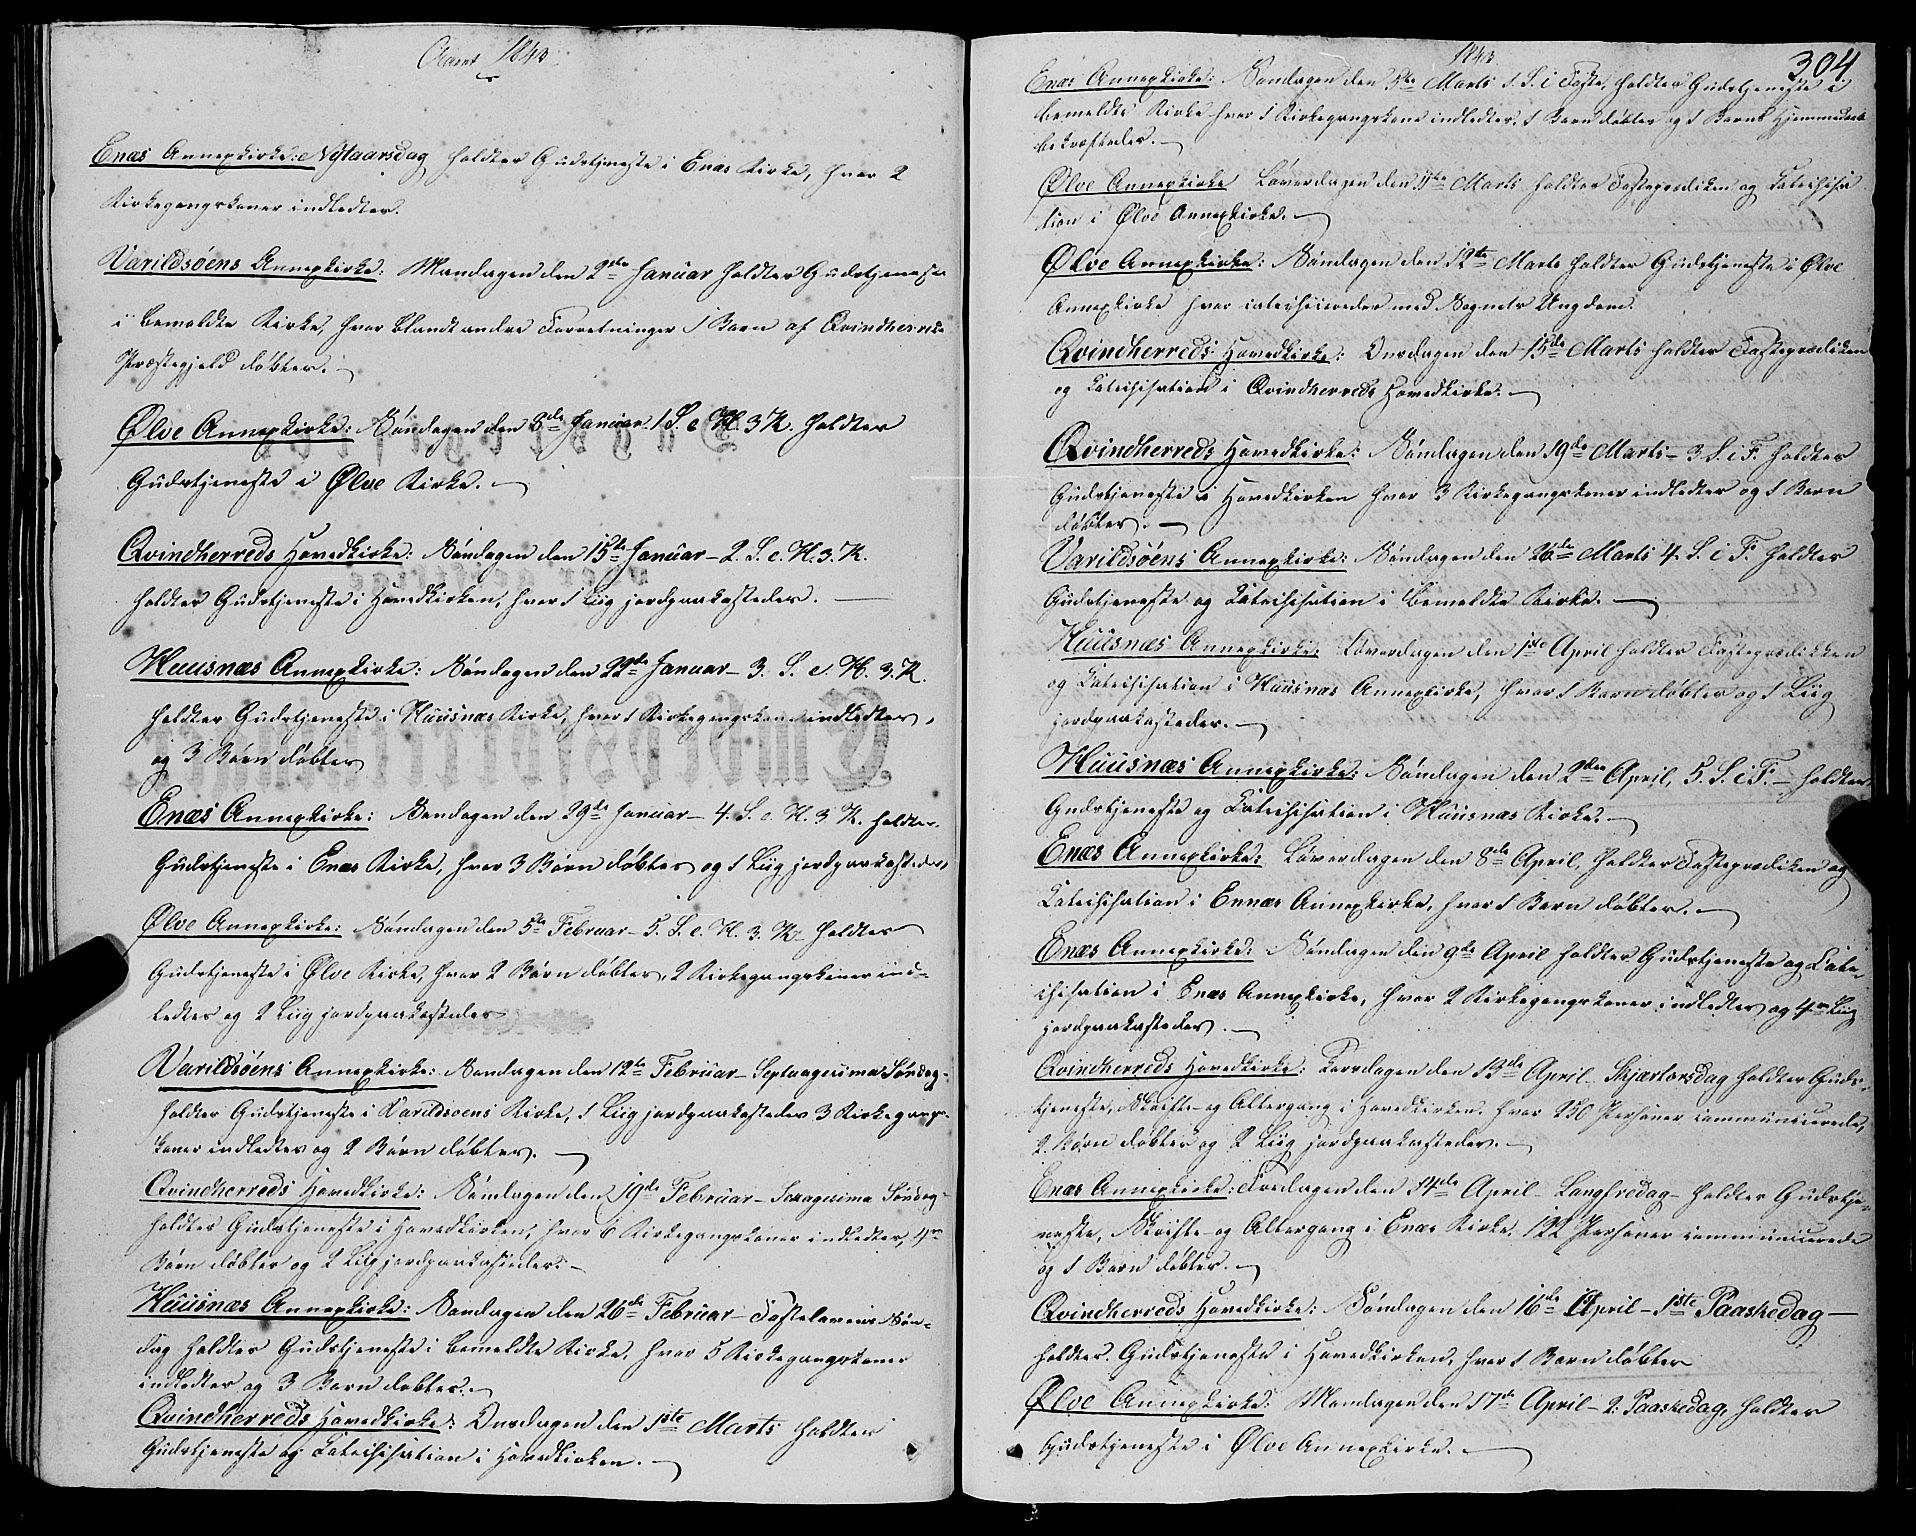 Aaret 1843.
Enæs Annexkirke: Nytaarsdag holdtes Gudstjeneste i Enæs Kirke, hvor 2
Kirkegangskoner indledtes.
Varildsöens Annexkirke: Mandagen den 2den Januar holdtes Gudstjeneste
i bemeldte Kirke, hvor blandt andre Forretninger 1 Barn af Qvindherreds
Præstegjeld döbtes.
Ølve Annexkirke: Söndagen den 8de Januar 1 S. e. H. 3 K. holdtes
Gudstjeneste i Ølve Kirke.
Qvindherreds Hovedkirke: Söndagen den 15de Januar - 2. S. e. H. 3. K.
holdtes Gudstjeneste i Hovedkirken, hvor 1 Liig jordpaakastedes.
Huusnæs Annexkirke: Söndagen den 22de Januar - 3. S. e. H. 3. K.
holdtes Gudstjeneste i Huusnæs Kirke, hvor 1 Kirkegangskone indledtes,
og 3 Börn döbtes
Enæs Annexkirke: Söndagen den 29de Januar - 4. S. e. H. 3 K. holdtes
Gudstjeneste i Enæs Kirke, hvor 3 Börn döbtes og 1 Liig jordpaakastedes,
Ølve Annexkirke: Söndagen den 5te Februar - 5. S. e. H. 3. K. holdtes
Gudstjeneste i Ølve Kirke, hvor 2 Börn döbtes, 2 Kirkegangskoner ind-
ledtes og 2 Liig jordpaakastedes
Varildsöens Annexkirke: Söndagen den 12te Februar - Septuagesima Söndag -
holdtes Gudstjeneste i Varildsoens Kirke, 1 Liig jordpaakastedes 3 Kirkegangs-
koner indledtes og 2 Börn döbtes.
Qvindherreds Hovedkirke: Söndagen den 19de Februar - Sexagesima Söndag -
holdtes Gudstjeneste i Hovedkirken, hvor 6 Kirkegangskoner indledtes, 4re
Börn döbtes og 2 Liig jordpaakastedes. -
Huusnæs Annexkirke: Söndagen den 26de Februar - Fastelavens Sön-
dag holdtes Gudstjeneste i bemeldte Kirke, hvor 5 Kirkegangskoner
indledtes og 3 Börn döbtes.
Qvindherreds Hovedkirke: Onsdagen den 1ste Marts holdtes
Gudstjeneste og Catechisation i Hovedkirken.
1843.
304
Enæs Annexkirke: Söndagen den 5te Marts 1. S. i Faste, holdtes Gudstjeneste i
bemeldte Kirke hvor 1 Kirkegangskone indledtes, 1 Barn döbtes og 1 Barns Hjemmedaab
bekræftedes.
Ølve Annexkirke Löverdagen den 11te Marts holdtes Fasteprædiken og Catechisa
tion i Ølve Annexkirke.
Ølve Annexkirke: Söndagen den 12te Marts holdtes Gudstjeneste i Ølve
Annexkirke hvor catechiseredes med Sognets Ungdom.
Qvindherreds Hovedkirke: Onsdagen den 15de Marts holdtes Fasteprædiken
og Catechisation i Qvindherreds Hovedkirke.
Qvindherreds Hovedkirke: Söndagen den 19de Marts - 3. S. i F. holdtes
Gudstjeneste i Hovedkirken hvor 3 Kirkegangskoner indledtes og 1 Barn
döbtes.
Varildsöens Annexkirke: Söndagen den 26de Marts 4. S. i F. holdtes
Gudstjeneste og Catechisation i bemeldte Kirke.
Huusnæs Annexkirke: Löverdagen den 1ste April holdtes Fasteprædikken
og Catechisation i Huusnæs Annexkirke, hvor 1 Barn döbtes og 1 Liig
jordpaakastedes.
Huusnæs Annexkirke: Söndagen den 2den April, 5. S. i F. - holdtes
Gudstjeneste og Catechisation i Huusnæs Kirke.
Enæs Annexkirke: Löverdagen den 8de April, holdtes Fasteprædiken og
Catechisation i Ennæs Annexkirke, hvor 1 Barn döbtes.
Enæs Annexkirke: Söndagen den 9de April holdtes Gudstjeneste og Cate-
chisation i Enæs Annexkirke, hvor 2 Kirkegangskoner indledtes og 4re Liig
jordpaakastedes.
Qvindherreds Hovedkirke: Torsdagen den 13de April - Skjærtorsdag holdtes Guds-
tjeneste, Skrifte- og Altergang i Hovedkirken, hvor 250 Personer communicerede,
2 Börn döbtes og 2 Liig jordpaakastedes.
Enæs Annexkirke: Fredagen den 14de April - Langfredag - holdtes Gudstje-
neste, Skrifte- og Altergang i Enæs Kirke, 122 Personer communicerede
og 1 Barn döbtes.
Qvindherreds Hovedkirke: Söndagen den 16de April - 1ste Paaskedag -
holdtes Gudstjeneste i Hovedkirken, hvor 1 Barn döbtes
Ølve Annexkirke: Mandagen den 17de April - 2: Paaskedag, holdtes
Gudstjeneste i Ølve Annexkirke.